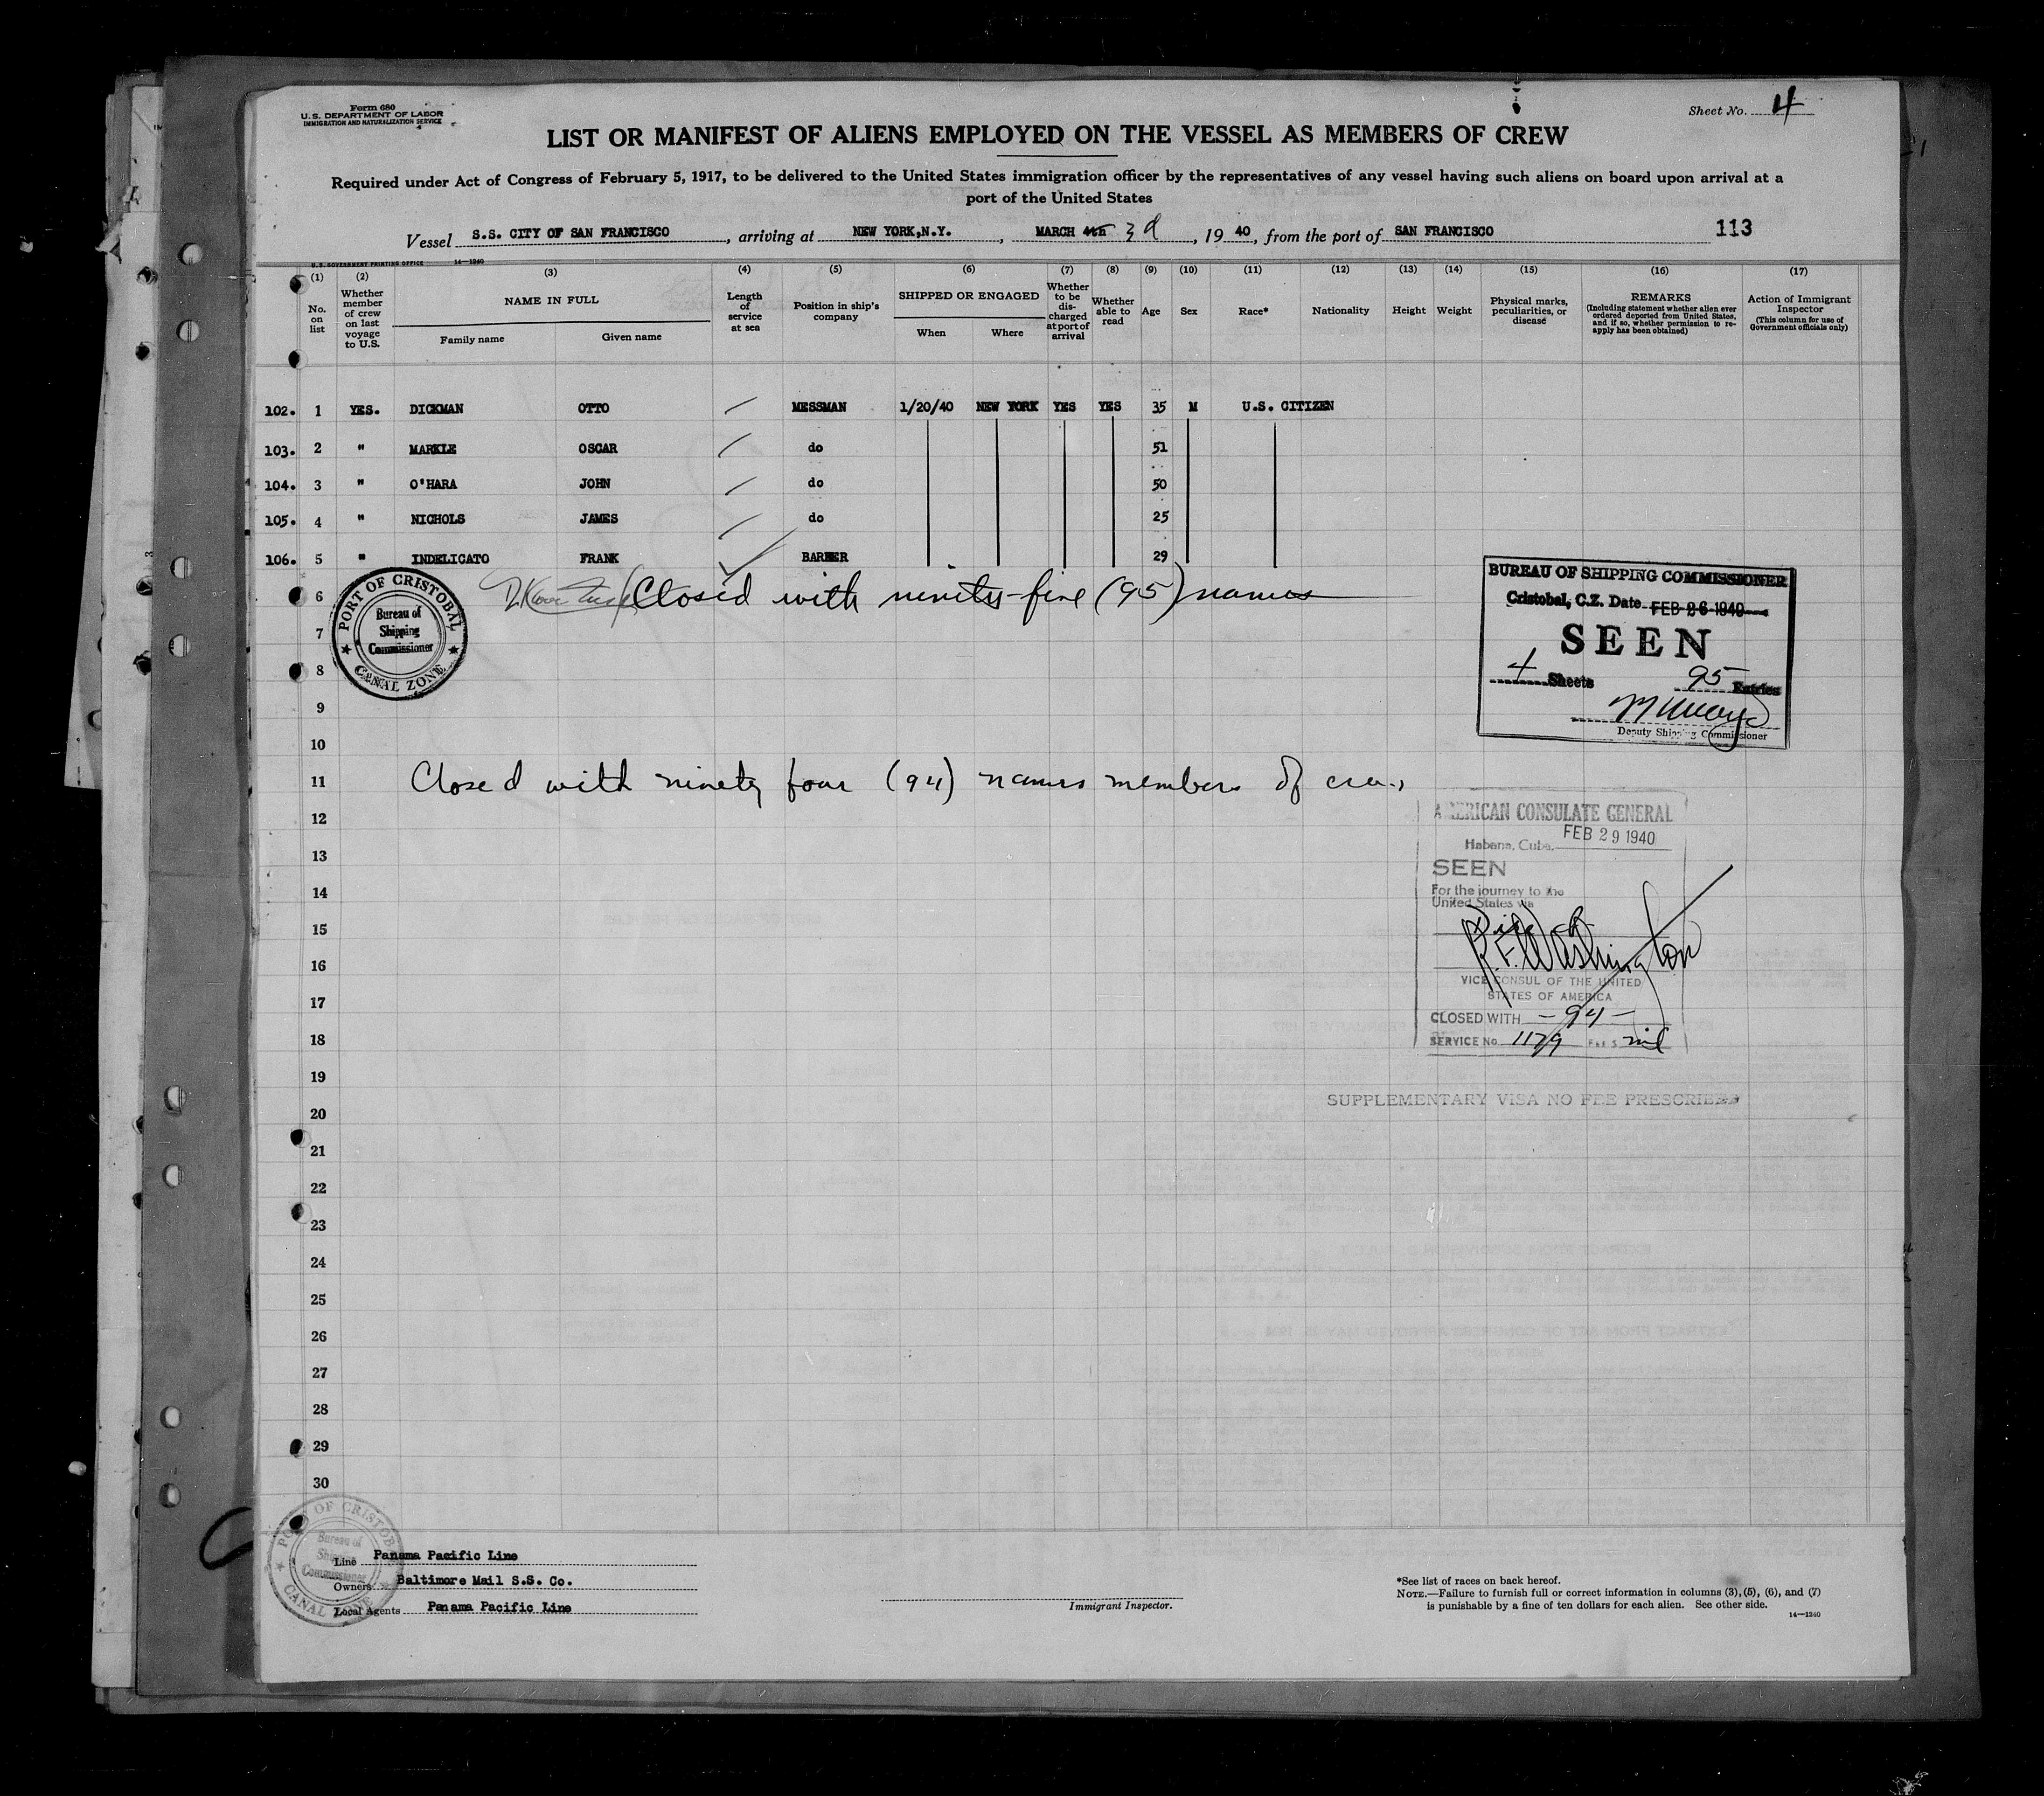 Form 680
U.S. DEPARTMENT OF LABOR
IMMIGRATION AND NATURALIZATION SERVICE
Sheet No. 4
LIST OR MANIFEST OF ALIENS EMPLOYED ON THE VESSEL AS MEMBERS OF CREW
Required under Act of Congress of February 5, 1917, to be delivered to the United States immigration officer by the representatives of any vessel having such aliens on board upon arrival at a
port of the United States
Vessel S.S. CITY OF SAN FRANCISCO, arriving at NEW YORK,N.Y., MARCH 4th 3d, 1940, from the port of SAN FRANCISCO 113
U.S. GOVERNMENT PRINTING OFFICE 14—1240
(1) (2) (3) (4) (5) (6) (7) (8) (9) (10) (11) (12) (13) (14) (15) (16) (17)
No. on list
Whether member of crew on last voyage to U.S.
NAME IN FULL
Family name
Given name
Length of service at sea
Position in ship's company
SHIPPED OR ENGAGED
When
Where
Whether to be discharged at port of arrival
Whether able to read
Age
Sex
Race*
Nationality
Height
Weight
Physical marks, peculiarities, or disease
REMARKS
(Including statement whether alien ever ordered deported from United States, and if so, whether permission to reapply has been obtained)
Action of Immigrant Inspector
(This column for use of Government officials only)
102. 1 YES. DICKMAN OTTO MESSMAN 1/20/40 NEW YORK YES YES 35 M U.S. CITIZEN
103. 2 " MARKLE OSCAR do 51
104. 3 " O'HARA JOHN do 50
105. 4 " NICHOLS JAMES do 25
106. 5 " INDELICATO FRANK BARBER 29
6 Closed with ninety-five (95) names
7
8
9
10
11 Closed with ninety four (94) names members of crew
12
13
14
15
16
17
18
19
20
21
22
23
24
25
26
27
28
29
30
PORT OF CRISTOBAL
Bureau of
Shipping
Commissioner
CANAL ZONE
BUREAU OF SHIPPING COMMISSIONER
Cristobal, C.Z. Date FEB 26 1940
SEEN
4 Sheets 95 Entries
Deputy Shipping Commissioner
AMERICAN CONSULATE GENERAL
FEB 29 1940
Habana, Cuba.
SEEN
For the journey to the
United States via
R. F. Washington
VICE CONSUL OF THE UNITED
STATES OF AMERICA
CLOSED WITH - 94 -
SERVICE No. 1179 FEES nil
SUPPLEMENTARY VISA NO FEE PRESCRIBED
PORT OF CRISTOBAL
Bureau of
Shipping
Commissioner
CANAL ZONE
Line Panama Pacific Line
Owners Baltimore Mail S.S. Co.
Local Agents Panama Pacific Line
Immigrant Inspector.
*See list of races on back hereof.
NOTE.—Failure to furnish full or correct information in columns (3), (5), (6), and (7)
is punishable by a fine of ten dollars for each alien. See other side.
14—1240